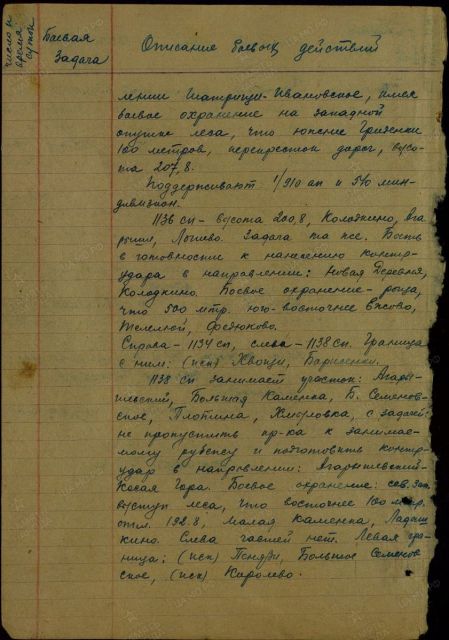 число и время суток
Боевая задача
Описание боевых действий
лении Шатрищи-Ивановское, имея
боевое охранение на западной
опушке леса, что южнее Гризенки
100 метров, перекресток дорог, высо-
та 207,8.
Поддерживают 1/910 ап и 540 мин-
дивизион.
1136 сп - высота 200,8, Колодкино, Ага
рыши, Логиево. Задача та же. Быть
в готовности к нанесению контр-
удара в направлении: Новая Деревня,
Колодкино. Боевое охранение - роща,
что 500 мтр. юго-восточнее
Телелюй, Фетюково.
Справа - 1134 сп, слева - 1138 сп. Граница
с ним: (иск) Хвощи, Барыленки.
1138 сп занимает участок: Агары-
шевский, Большая Каменка, Б. Семенов-
ское, Плотина, с задачей:
не пропустить пр-ка к занимае-
мому рубежу и подготовить контр-
удар в направлении: Агарышевский-
Косая Гора. Боевое охранение: сев. зап.
выступ леса, что восточнее 100 мтр.
отм. 192.8, Малая Каменка, Ладыш
кино. Слева частей нет. Левая гра-
ница: (иск) Большое Семенов
ское, (иск) Королево.